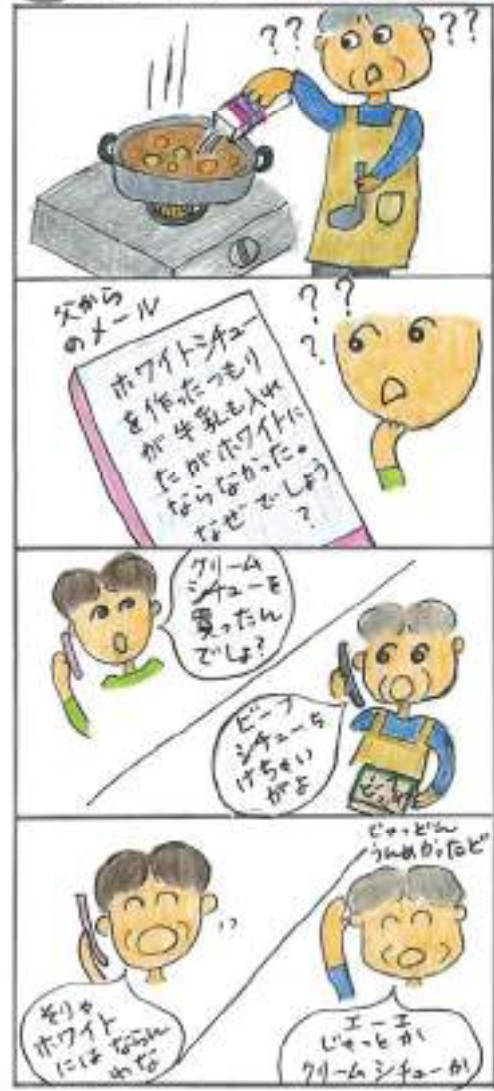 ??
??
父から
のメール
ホワイトシチュー
を作ったつもり
が牛乳も入れ
たがホワイトに
ならなかった。
なぜでしょう
?
?
?
?
クリーム
シチューを
買ったん
でしょ?
ビーフ
シチューち
げちゃい
がよ
じゃっどん
うんめかったど
そりゃ
ホワイト
にはならん
わな
エーエ
じゃっとか
クリームシチューか!